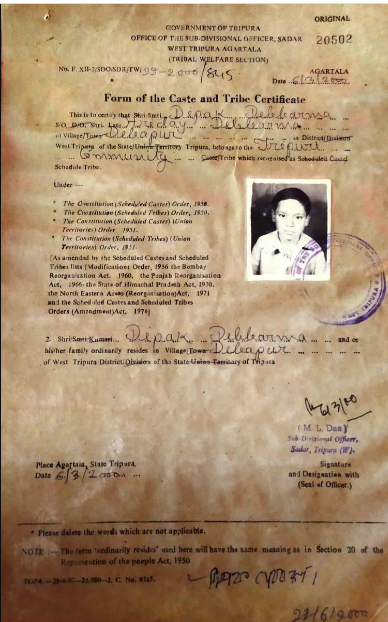 ORIGINAL
GOVERNMENT OF TRIPURA
OFFICE OF THE SUB-DIVISIONAL OFFICER, SADAR
20502
WEST TRIPURA AGARTALA
(TRIBAL WELFARE SECTION)
AGARTALA
Date 6/3/2000
Form of the Caste and Tribe Certificate
This is to certify that Shri/Smti Dipak Debbarma
S/O, D/O, Shri. Debbarma
of Village/Town Debapur in District/Division
West Tripura of the State/Union Territory Tripura, belongs to the Tripuri
Community Caste/Tribe which recognised as Scheduled Caste/
Schedule Tribe.
Under —
* The Constitution (Scheduled Castes) Order, 1950.
* The Constitution (Scheduled Tribes) Order, 1950.
* The Constitution (Scheduled Castes) (Union
Territories) Order 1951.
* The Constitution (Scheduled Tribes) (Union
Territories) Order, 1951.
[As amended by the Scheduled Castes and Scheduled
Tribes lists (Modification) Order, 1956 the Bombay
Reorganisation Act. 1960, the Punjab Reorganisation
Act, 1966, the State of Himachal Pradesh Act, 1970,
the North Eastern Areas (Reorganisation) Act, 1971
and the Scheduled Castes and Scheduled Tribes
Orders (Amendment) Act, 1976]
2. Shri/Smti/Kumari. Dipak Debbarma and or
his/her family ordinarily resides in Village/Town Debapur
of West Tripura District/Division of the State Union Territory of Tripura
6/3/00
(M. L. Das)
Sub-Divisional Officer,
Sadar, Tripura (W).
Place Agartala, State Tripura.
Signature
Date 6/3/2000
and Designation with
(Seal of Officer.)
* Please delete the words which are not applicable.
NOTE :— The term 'ordinarily resides' used here will have the same meaning as in Section 20 of the
Representation of the people Act, 1950